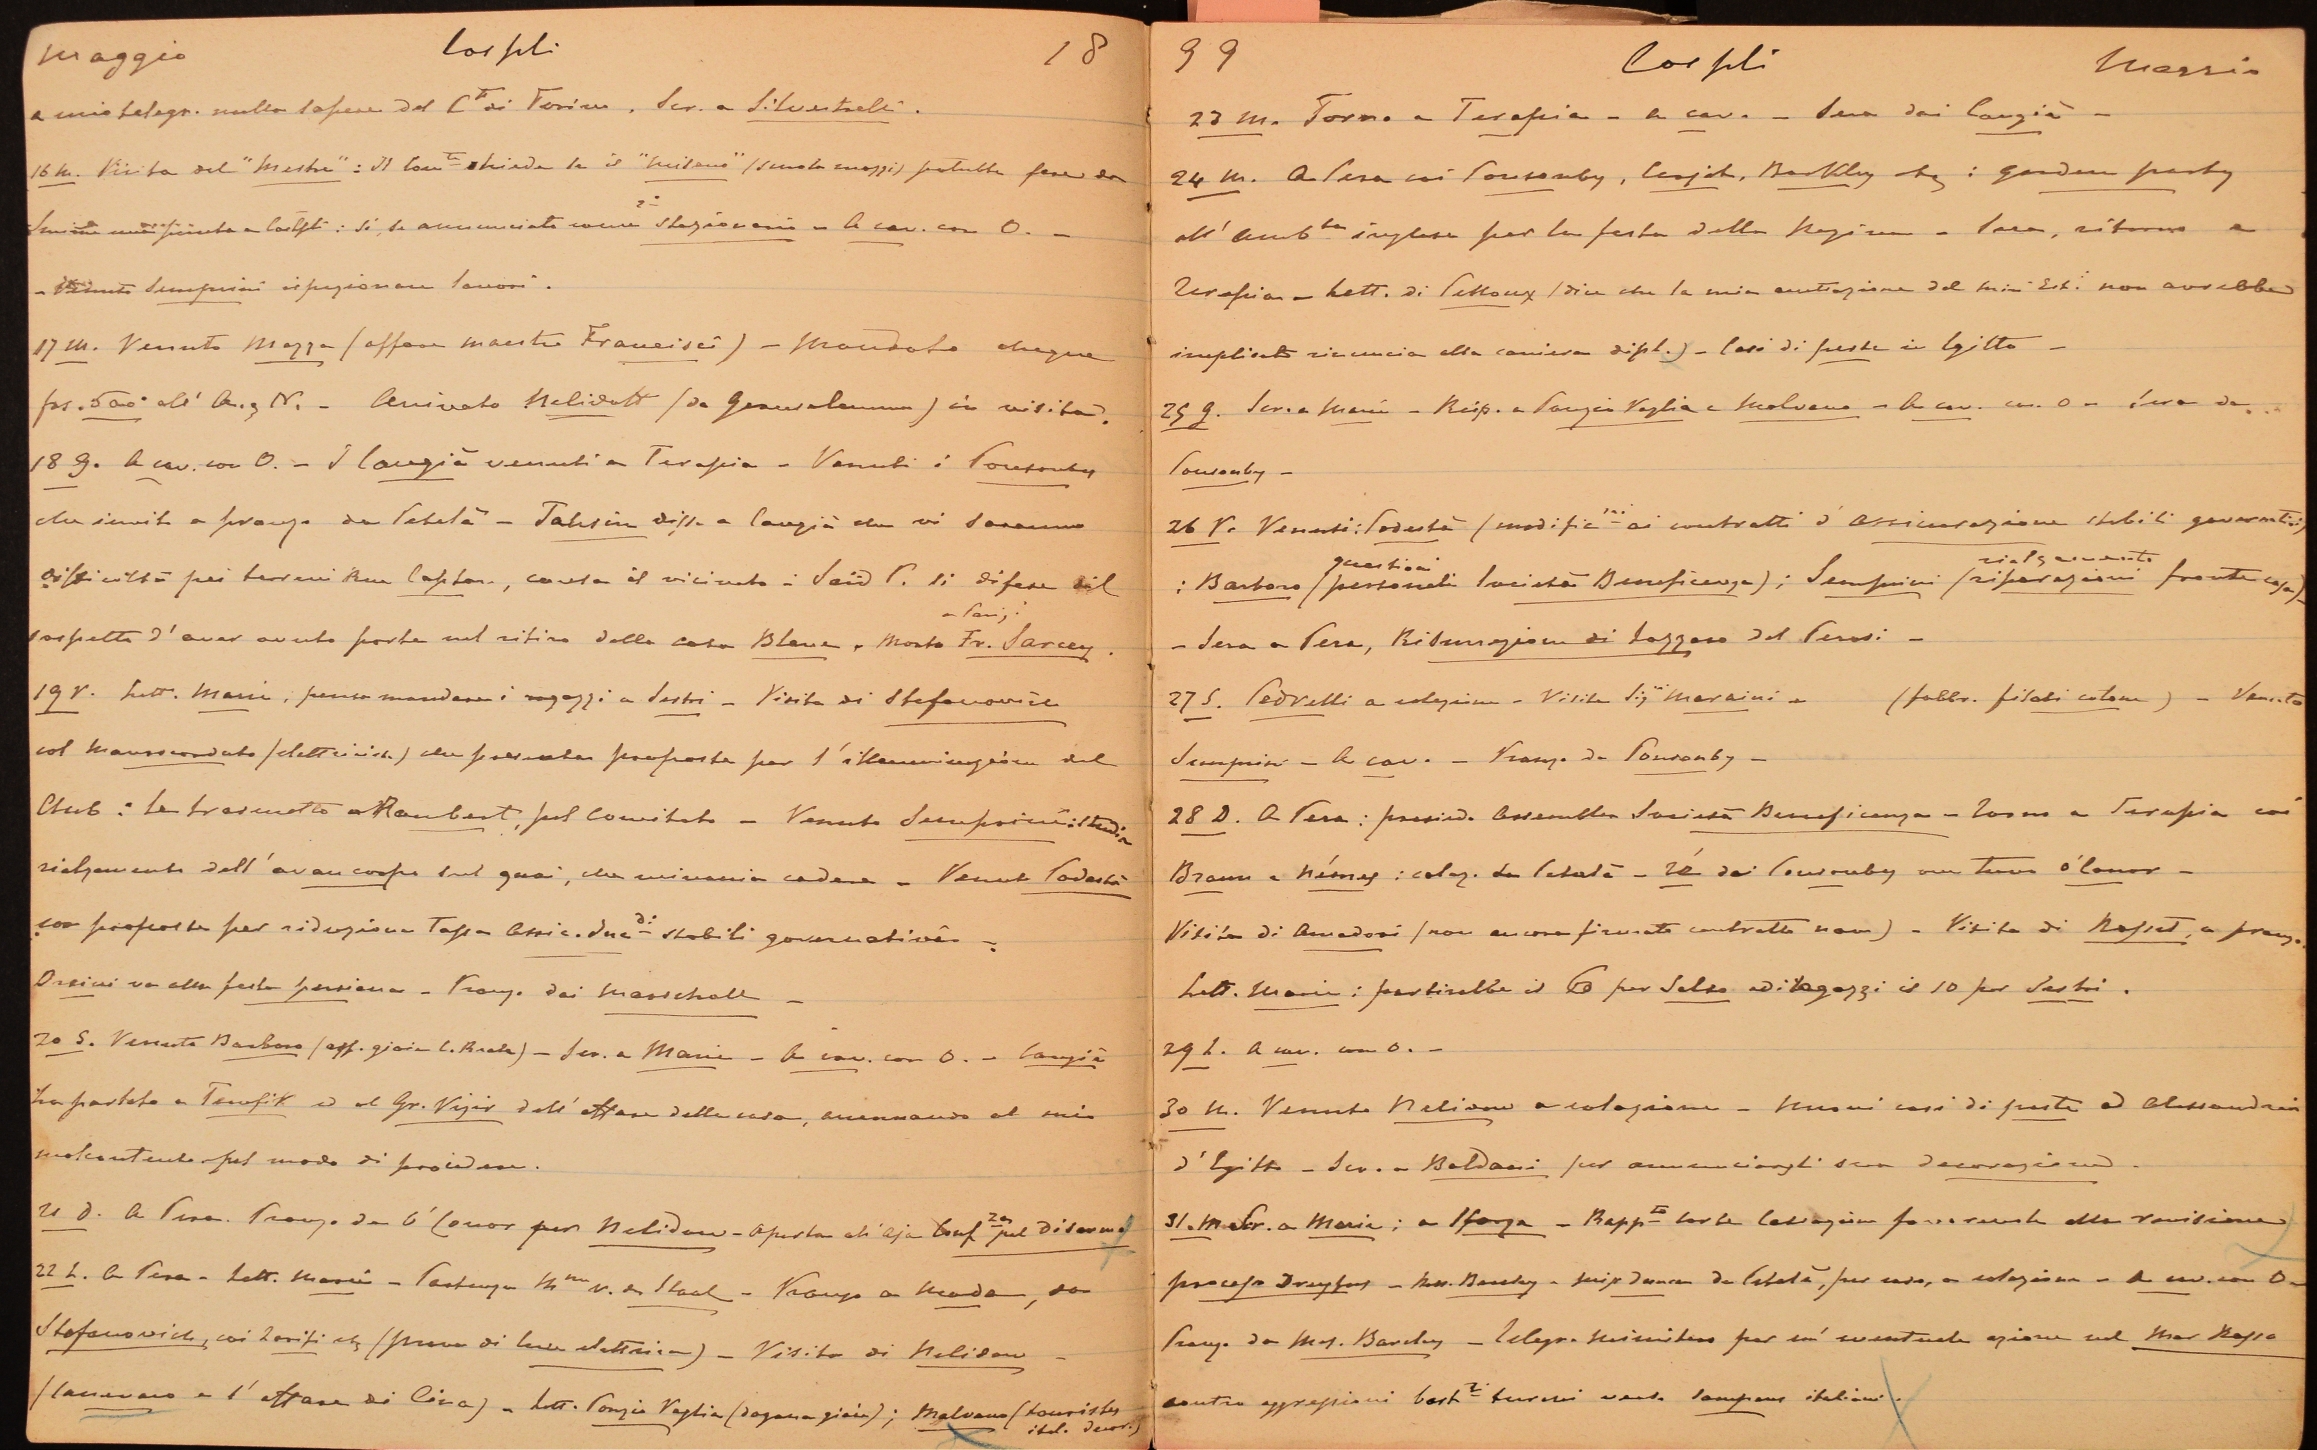 Maggio Cospli 18
a mio telegr. nulla sapere del Cte di Torino. Scr. a Silvestrelli.
16 M. Visita del "Mestre": il Comte chiede se il "Miseno" potrebbe fare
: sì, se annunciato come 2o Stazionario - A cav. con O. -
- Venuto Semprini ispezionare lavori.
17 M. Venuto Mazza (affare maestro Francisci) - Mandato cheque
all' A. e N. - Arrivato Nelidoff (da Gerusalemme) in visita.
18 G. A cav. con O. - I Cangià venuti a Terapia - Venuti i Ponsonby
che invito a pranzo da Petalà - Tahsin disse a Cangià che vi saranno
difficoltà pei terreni Rue Caplan, causa il vicinato - Saïd P. si difese dal
sospetto d'aver avuto parte nel ritiro della casa Blanc. Morto a Parigi Fr. Sarcey.
19 V. Lett. Marie; pensa mandare i ragazzi a Sestri - Visita di Stefanovich
col Maurocordato (elettricista) che presenta proposta per l'illuminazione del
Club: la trasmetto a Rambert, pel Comitato - Venuto Semprini: studia
rialzamento dell'avancorpo sul quai, che minaccia cadere - Venuto Podestà
con proposta per riduzione Tassa Assic. stabili governativi -
Orsini va alla festa persiana - Pranzo dai Marschall -
20 S. Venuto Barboro (aff. gioie C. Reale) - Scr. a Marie - A cav. con O. - Cangià
ha parlato a Tewfik ed al Gr. Vizir dell'affare della casa, accennando al mio
malcontento pel modo di procedere.
21 D. A Pera. Pranzo da O'Conor per Nelidow - Aperta all'Aja Confza pel Disarmo
22 L. A Pera - Lett. Marie - Partenza Mme v. de Staal - Pranzo a Moda, da
Stefanovich, coi Zarifi etc (prova di luce elettrica) - Visita di Nelidow -
(Canevaro e l'affare di Cina) - Lett. Ponzio Vaglia (dogana gioie); Malvano (touristes
ital. decor.)
99 Cospli Maggio
23 M. Torno a Terapia - A cav. - Sera dai Cangià -
24 M. A Pera coi Ponsonby, Barkley etc: garden party
all'Ambta inglese per la festa della Regina - Sera, ritorno a
Terapia - Lett. di Pelloux (dice che la mia accettazione del Mino Est. non avrebbe
implicato rinuncia alla carriera dipl.) - Casi di peste in Egitto -
25 G. Scr. a Marie - Risp. a Ponzio Vaglia e Malvano - A cav. con O - Sera da
Ponsonby -
26 V. Venuti: Podestà (modificni ai contratti d'assicurazione stabili governativi)
: Barboro (questioni personali Società Beneficenza); Semprini (rialzamento riparazioni fronte casa) -
- Sera a Pera, Risurrezione di Lazzaro del Perosi -
27 S. Pedrelli a colazione - Visita Sigri Maraini e (fabbr. filati cotone) - Venuto
Semprini - A cav. - Pranzo da Ponsonby -
28 D. A Pera: presiedo Assemblea Società Beneficenza - Torno a Terapia coi
Braun e Némey: colaz. da Petalà - Té dai Ponsonby O'Conor -
Visita di Amadori (non ancora firmato contratto nave) - Visita di Rosset, a pranzo.
Lett. Marie: partirebbe il per Salso ed i ragazzi il 10 per Sestri.
29 L. A cav. con O. -
30 M. Venuto Nelidow a colazione - Nuovi casi di peste ad Alessandria
d'Egitto - Scr. a Baldani per annunciargli sua decorazione.
31. M. Scr. a Marie; a Sforza - Rappto Corte Cassazione favorevole alla revisione
processo Dreyfus - Mrs. Barclay - Miss Duncan da Petalà, a colazione - A cav. con O -
Pranzo da Mrs. Barclay - Telegr. Ministero per un' eventuale azione nel Mar Rosso
contro aggressioni turchi verso sampans italiani.